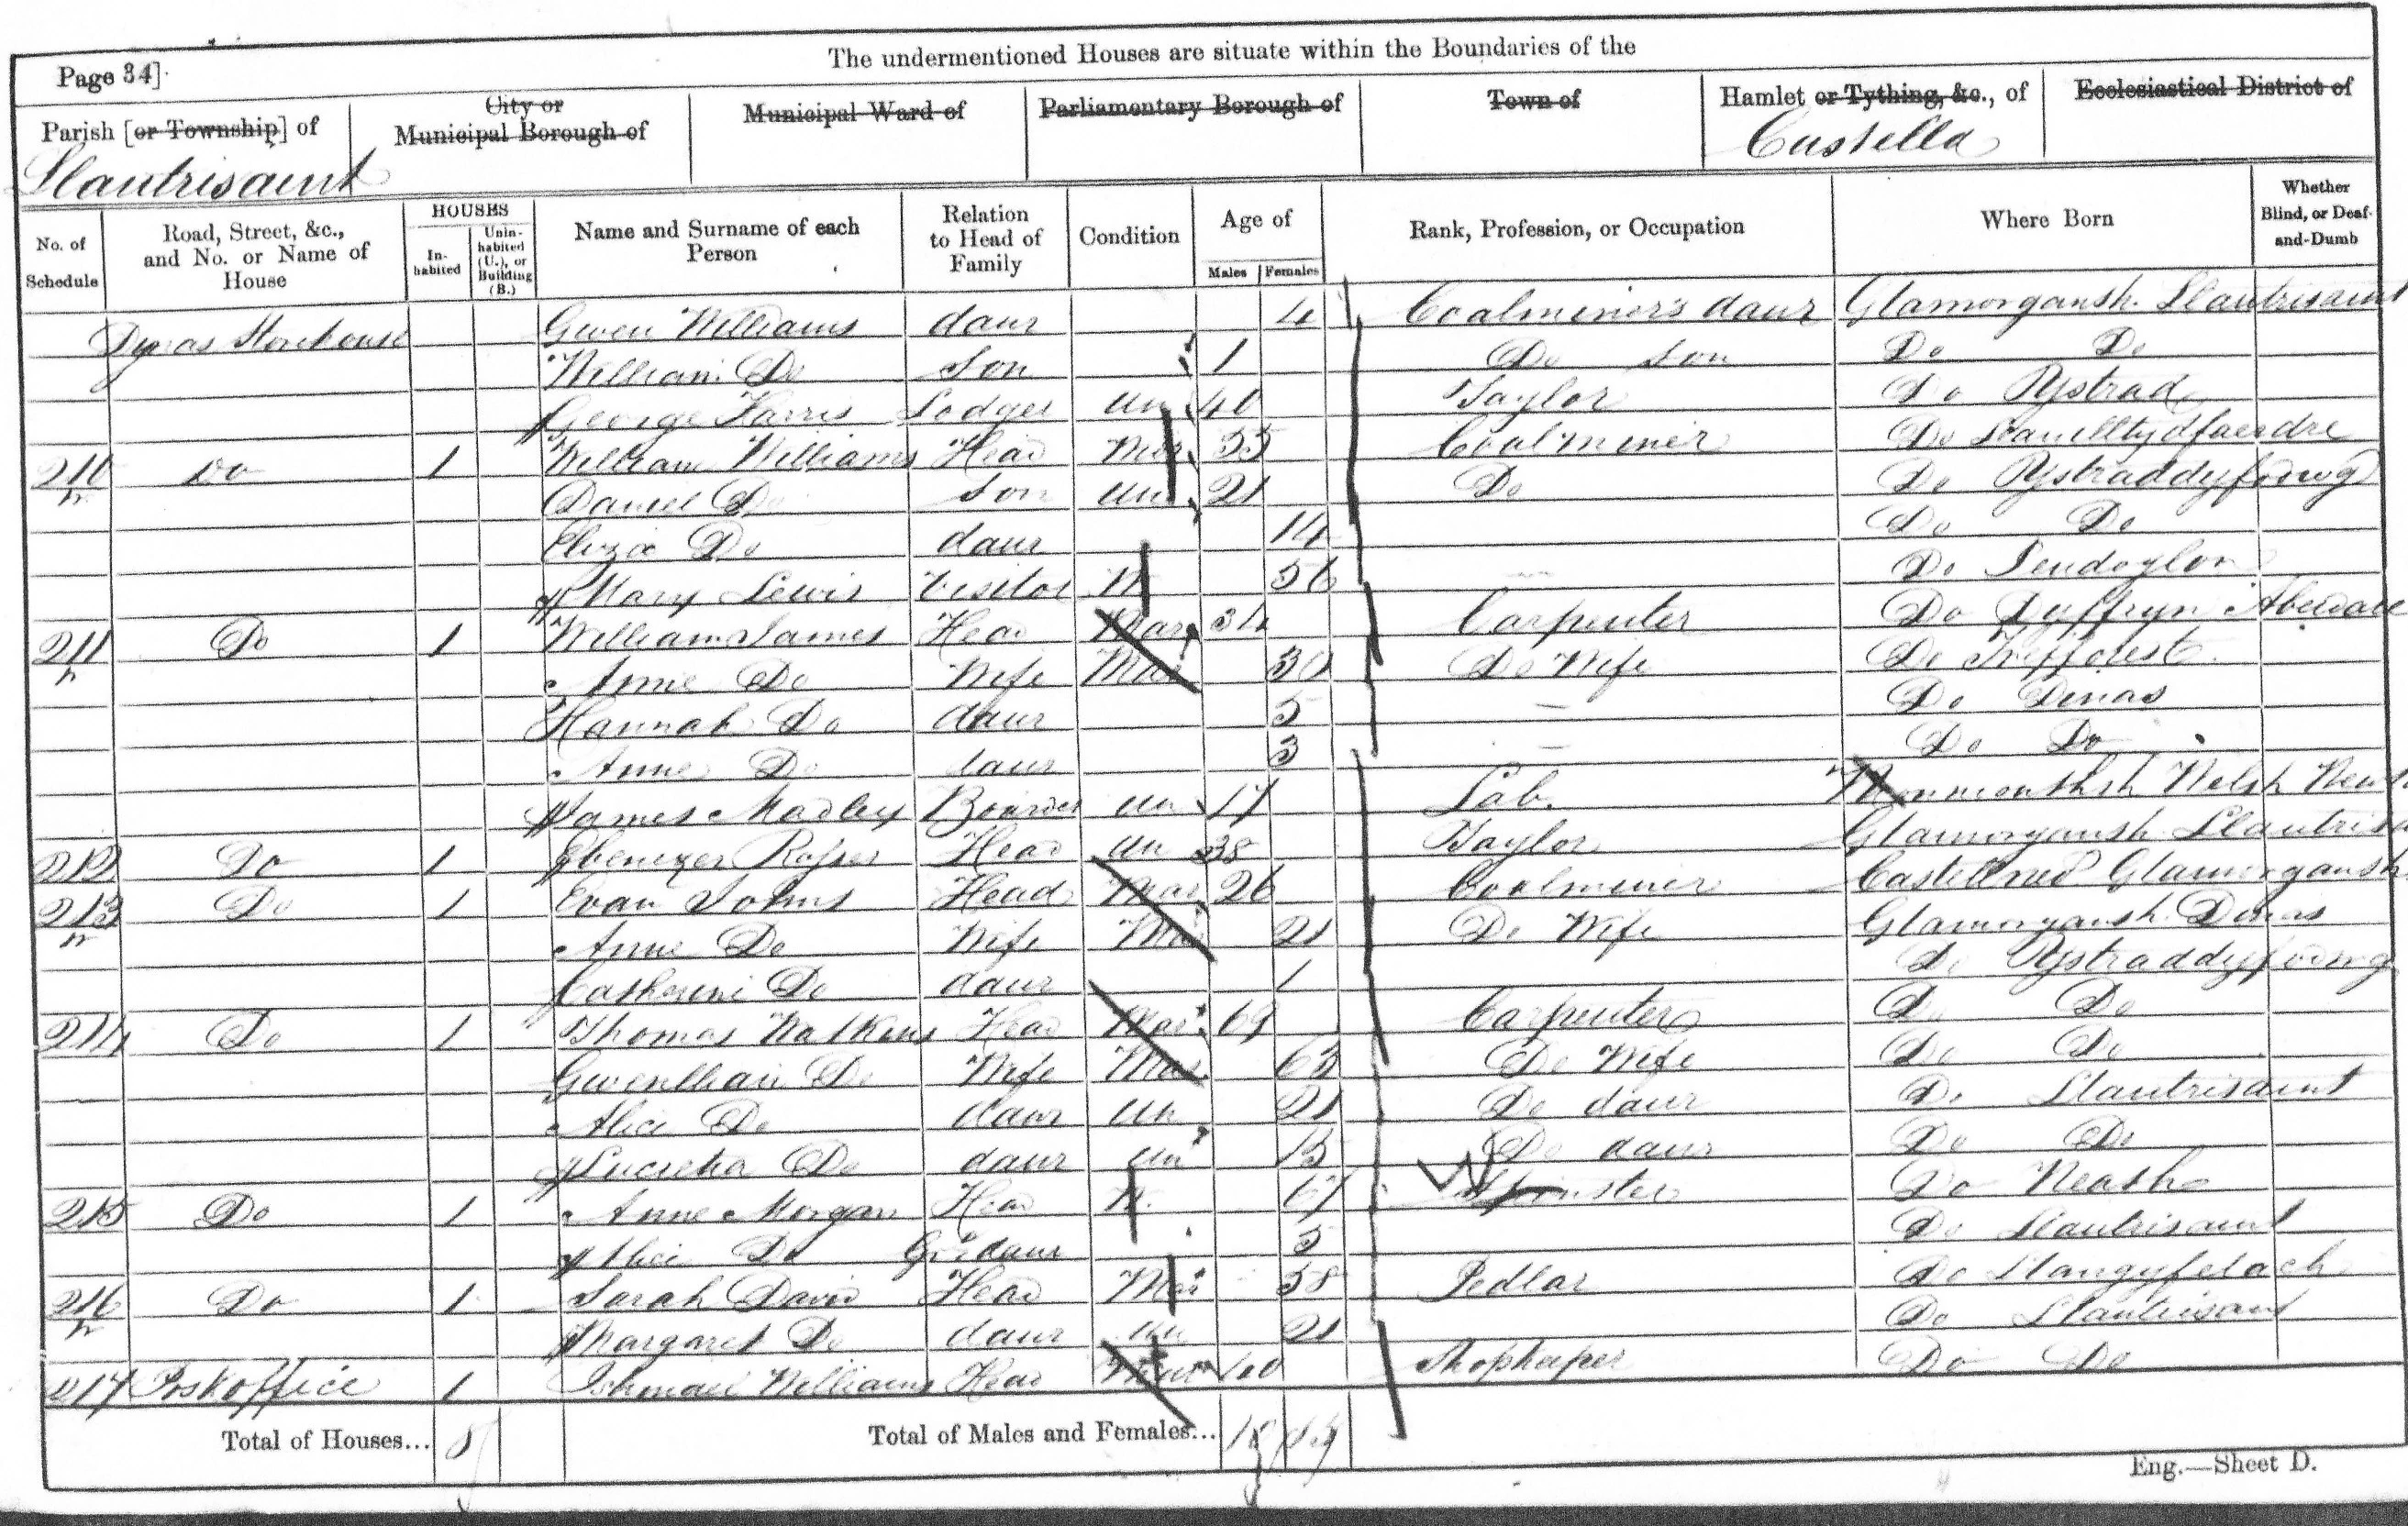 The undermentioned Houses are situate within the Boundaries of the
Page 34]
Parish [or Township] of
City or Municipal Borough of
Municipal Ward of
Parliamentary Borough of
Town of
Hamlet or Tything, &c., of
Ecclesiastical District of
Llantrisaint
Castella
No. of Schedule
Road, Street, &c., and No. or Name of House
HOUSES
In-habited
Unin-habited (U.), or Building (B.)
Name and Surname of each Person
Relation to Head of Family
Condition
Age of
Males
Females
Rank, Profession, or Occupation
Where Born
Whether Blind, or Deaf-and-Dumb
Dynas Storehouse Gwen Williams daur 4 Coalminer's daur Glamorgansh. Llantrisaint
William Do Son 1 Do Son Do Do
George Harris Lodger Un 40 Taylor Do Ystrad
210 Do 1 William Williams Head 55 Coalminer Do
Daniel Do Son Un 21 Do Do Ystraddyfodwg
Eliza Do daur 14 Do Do
Mary Lewis Visitor W 56 Do Pendoylon
211 Do 1 William James Head Mar 34 Carpenter Do Duffryn Aberdare
Anne Do Wife Mar 30 Do Wife Do Trefforest
Hannah Do daur 5 Do Dinas
Anne Do daur 3 Do Do
James Madley Boarder Un 17 Lab. Monmouthsh Welsh
212 Do 1 Ebenezer Rosser Head Un 38 Taylor Glamorgansh Llantrisa
213 Do 1 Evan Johns Head Mar 26 Coalminer Glamorgansh
Anne Do Wife Mar 21 Do Wife Glamorgansh Dinas
Catherine Do daur 1 Do Ystraddyfodwg
214 Do 1 Thomas Watkins Head Mar 69 Carpenter Do Do
Gwenllian Do Wife Mar 63 Do Wife Do Do
Alice Do daur Un 21 Do daur Do Llantrisaint
Lucretia Do daur Un 15 Do daur Do Do
215 Do 1 Anne Morgan Head W. 67 W Do Neath
Alice Do Gr. daur 5 Do Llantrisaint
216 Do 1 Sarah David Head Mar 58 Pedlar Do Llangyfelach
Margaret Do daur Un 21 Do Llantrisant
217 Post office 1 Ishmael Williams Head Mar 40 Shopkeeper Do Do
Total of Houses... 8
Total of Males and Females...
Eng.—Sheet D.